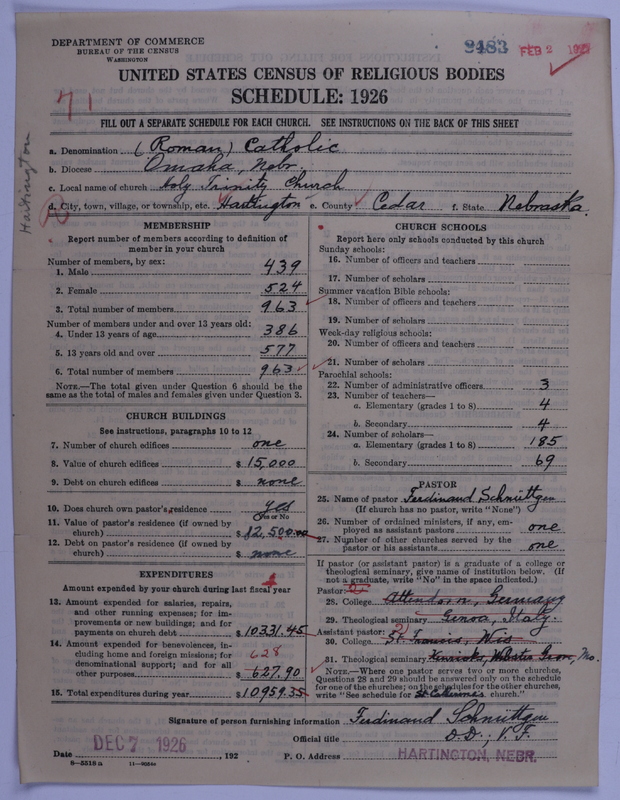 DEPARTMENT OF COMMERCE
BUREAU OF THE CENSUS
WASHINGTON
9483 FEB 2
UNITED STATES CENSUS OF RELIGIOUS BODIES
SCHEDULE: 1926
71
FILL OUT A SEPARATE SCHEDULE FOR EACH CHURCH. SEE INSTRUCTIONS ON THE BACK OF THIS SHEET
Hartington
a. Denomination (Roman) Catholic
b. Diocese Omaha, Nebr.
c. Local name of church Holy Trinity Church
d. City, town, village, or township, etc. Hartington e. County Cedar f. State Nebraska.
MEMBERSHIP
Report number of members according to definition of
member in your church
Number of members, by sex:
1. Male 439
2. Female 524
3. Total number of members 963
Number of members under and over 13 years old:
4. Under 13 years of age 386
5. 13 years old and over 577
6. Total number of members 963
NOTE.—The total given under Question 6 should be the
same as the total of males and females given under Question 3.
CHURCH BUILDINGS
See instructions, paragraphs 10 to 12
7. Number of church edifices one
8. Value of church edifices $ 15,000
9. Debt on church edifices $ none
10. Does church own pastor's residence yes
(Yes or No)
11. Value of pastor's residence (if owned by
church) $ 12,500.00
12. Debt on pastor's residence (if owned by
church) $ none
EXPENDITURES
Amount expended by your church during last fiscal year
13. Amount expended for salaries, repairs,
and other running expenses; for im-
provements or new building; and for
payments on church debt $ 10331.45
14. Amount expended for benevolences, in-
cluding home and foreign missions; for
denominational support; and for all
other purposes 628
$ 627.90
15. Total expenditures during year $ 10959.35
CHURCH SCHOOLS
Report here only schools conducted by this church
Sunday schools:
16. Number of officers and teachers
17. Number of scholars
Summer vacation Bible schools:
18. Number of officers and teachers
19. Number of scholars
Week-day religious schools:
20. Number of officers and teachers
21. Number of scholars
Parochial schools:
22. Number of administrative officers 3
23. Number of teachers—
a. Elementary (grades 1 to 8) 4
b. Secondary 4
24. Number of scholars—
a. Elementary (grades 1 to 8) 185
b. Secondary 69
PASTOR
25. Name of pastor Ferdinand Schnuttgen
(If church has no pastor, write "None")
26. Number of ordained ministers, if any, em-
ployed as assistant pastors one
27. Number of other churches served by the
pastor or his assistants one
If pastor (or assistant pastor) is a graduate of a college or
theological seminary, give name of institution below. (If
not a graduate, write "No" in the space indicated.)
Pastor:
28. College Attendorn, Germany
29. Theological seminary Genoa, Italy.
Assistant pastor: 2
30. College St. Francis, Wis
31. Theological seminary Kenrick, Webster Grov, Mo.
NOTE.—Where one pastor serves two or more churches,
Questions 28 and 29 should be answered only on the schedule
for one of the churches; on the schedules for the other churches,
write "See schedule for St Catherine's church."
Signature of person furnishing information Ferdinand Schnuttgen
Official title D.D., V.F.
Date DEC 7 1926, 192 P. O. Address HARTINGTON, NEBR.
8—5518 a